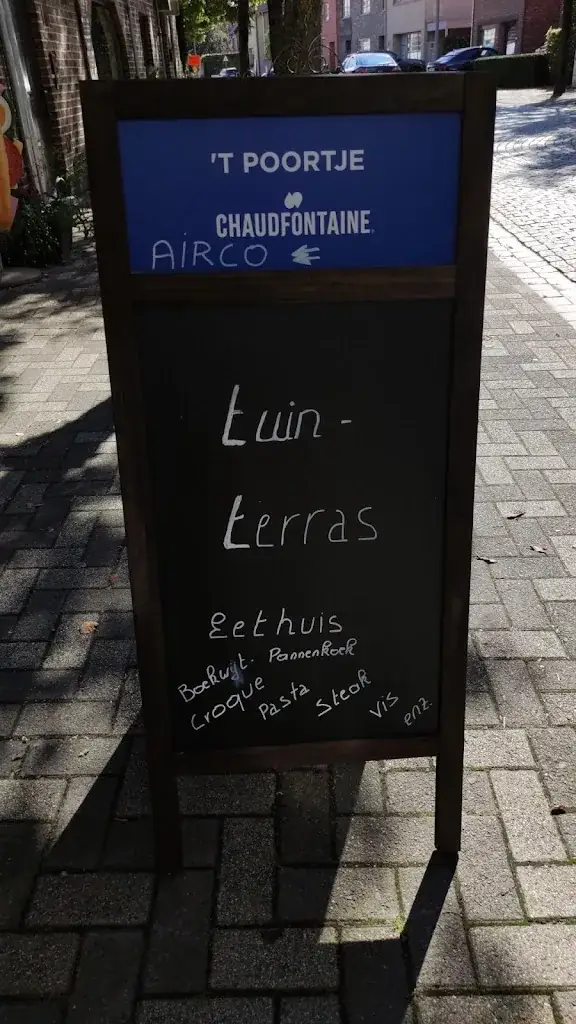 'T POORTJE
CHAUDFONTAINE
AIRCO
tuin-
terras
Eethuis
Boekwyt. Pannenkoek
Croque Pasta Steak Vis enz.